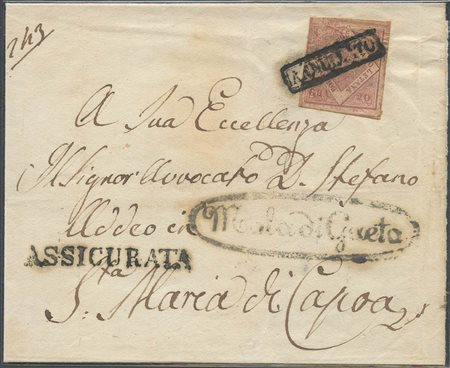 2113
ANNULLATO
GRA 20
A Sua Eccellenza
Il Signor Avvocato D. Stefano
Addeo in
Mola di Gaeta
ASSICURATA
S.ta Maria di Capoa